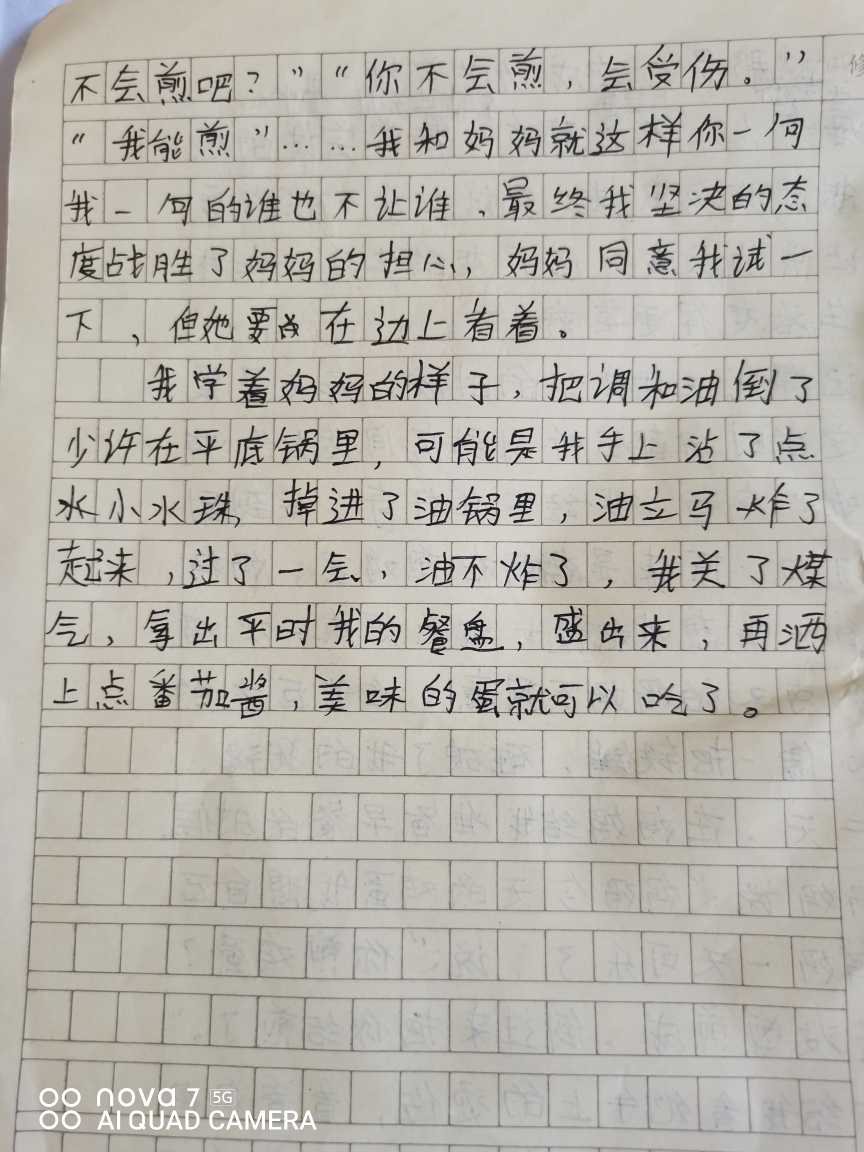 不会煎吧？”“你不会煎，会受伤。”
“我能煎”……我和妈妈就这样你一句
我一句的谁也不让谁、最终我坚决的态
度战胜了妈妈的担心，妈妈同意我试一
下，但她要站在边上看着。
我学着妈妈的样子，把调和油倒了
少许在平底锅里，可能是我手上沾了点
水小水珠，掉进了油锅里，油立马炸了
起来，过了一会，油不炸了，我关了煤
气，拿出平时我的餐盘，盛出来，再洒
上点番茄酱，美味的蛋就可以吃了。
nova 7 5G
AI QUAD CAMERA